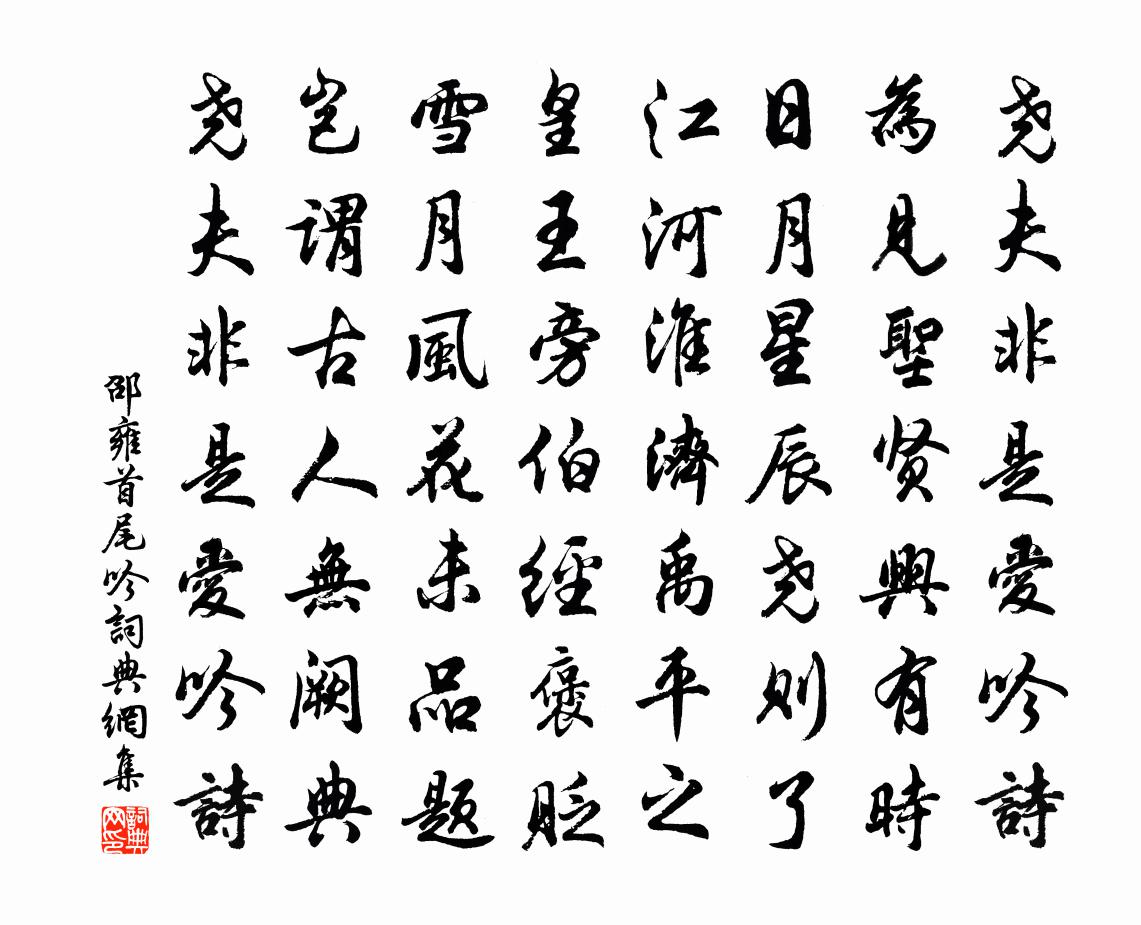 尧夫非是愛吟詩
為見聖贤興有時
日月星辰尧则了
江河淮濟禹平之
皇王帝伯經褒貶
雪月風花未品题
岂謂古人無阙典
尧夫非是愛吟詩
邵雍首尾吟詞典網集
詞典网印